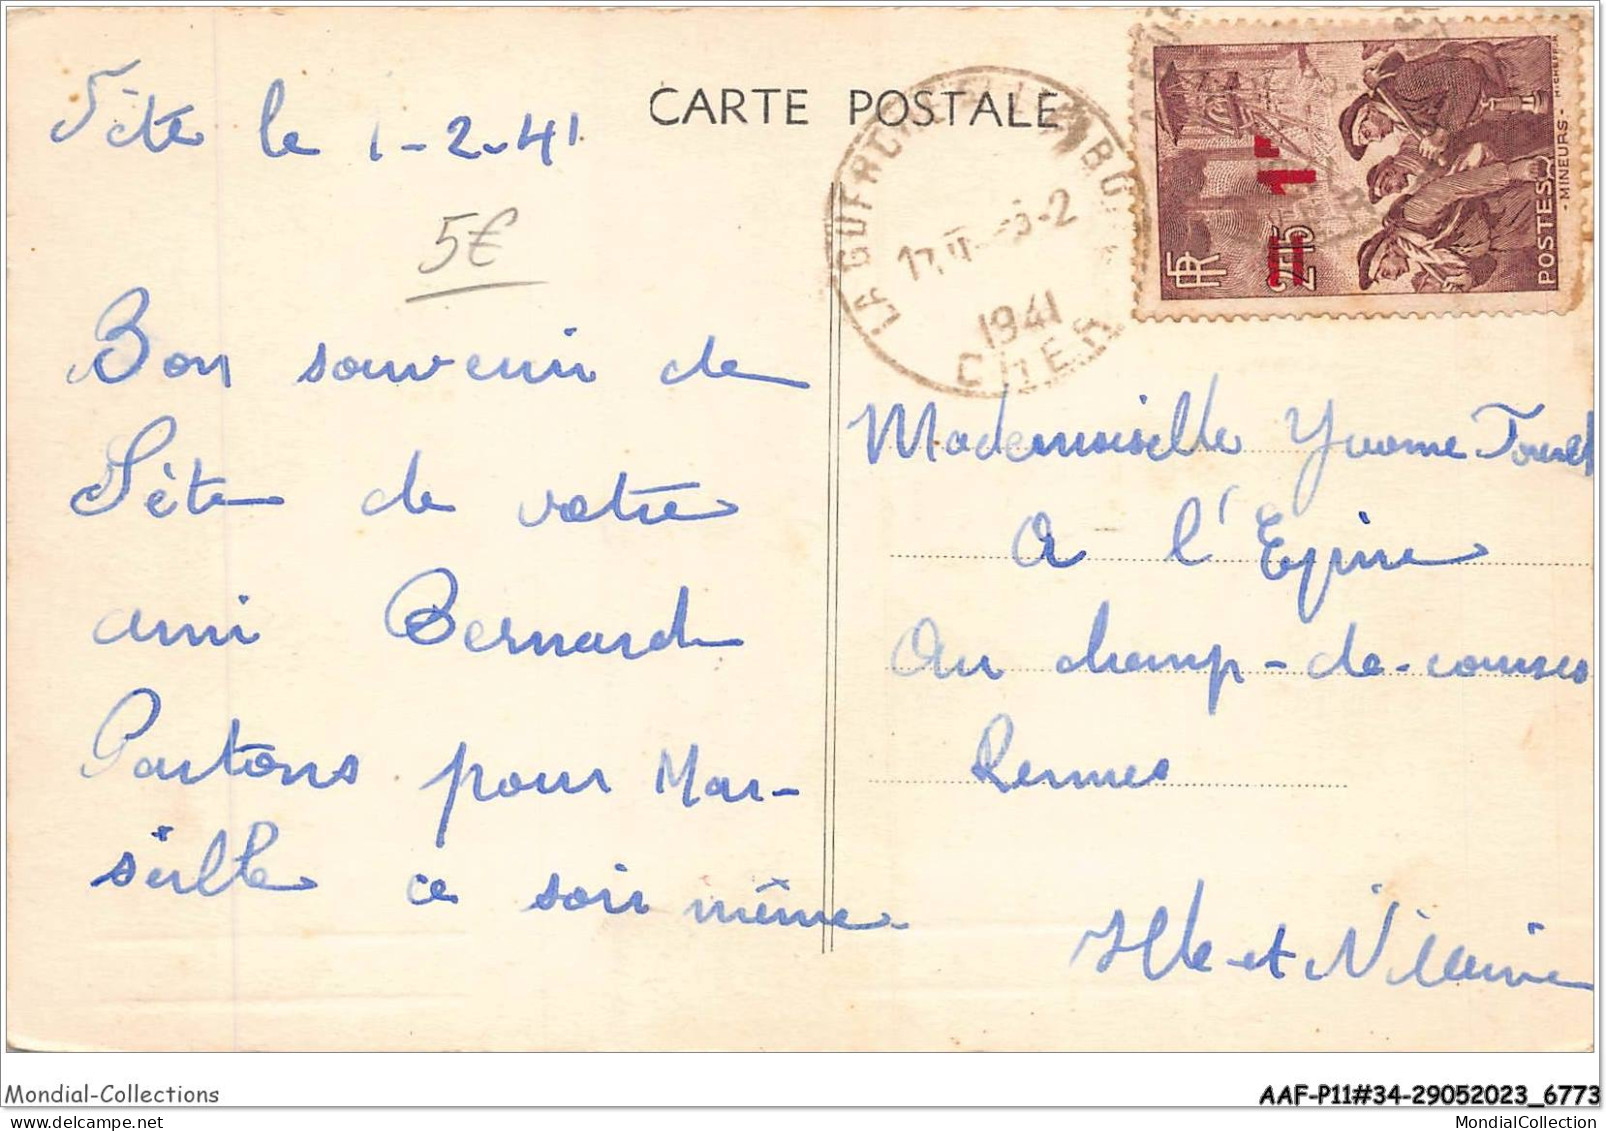 CARTE POSTALE
Sète le 1-2-41
5€
Bon souvenir de
Sète de votre
ami Bernard
Partons pour Mar-
seille ce soir même.
LA GUERCHE
17 H -2
1941
CHER
RF
1F
2F15
POSTES
-MINEURS-
Mademoiselle Yvonne
a l'Epine
Au champ-de-courses
Rennes
Ille-et-Villaine
Mondial-Collections
AAF-P11#34-29052023_6773
MondialCollection